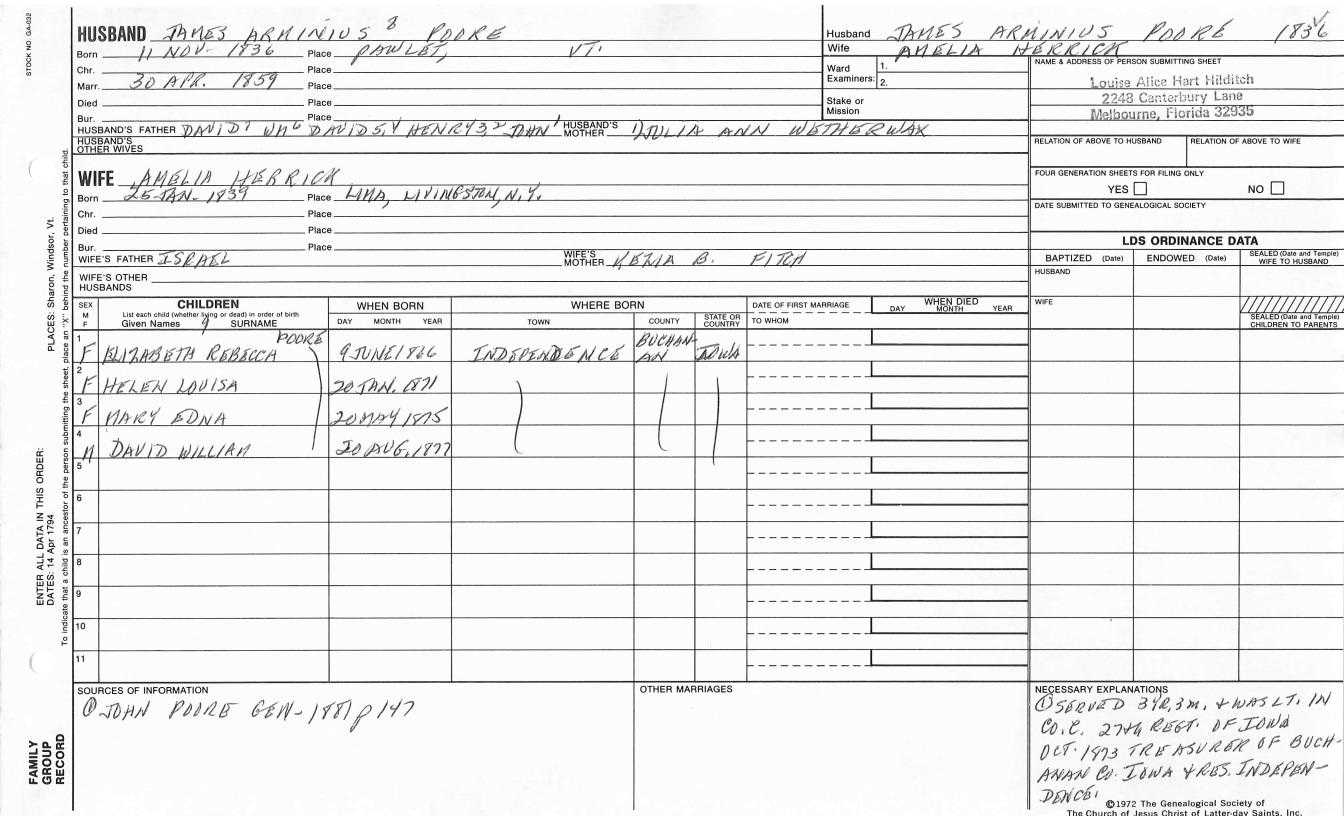 STOCK NO. GA-032
HUSBAND JAMES ARMINIUS 8 POORE
Born 11 NOV. 1836 Place PAWLET, VT.
Chr. Place
Marr. 30 APR. 1859 Place
Died Place
Bur. Place
HUSBAND'S FATHER DAVID7 WM6 DAVID5,4 HENRY3,2 JOHN1 HUSBAND'S MOTHER 1) JULIA ANN WETHERWAX
HUSBAND'S OTHER WIVES
Husband JAMES ARMINIUS POORE 1836
Wife AMELIA HERRICK
Ward Examiners: 1.
2.
Stake or Mission
NAME & ADDRESS OF PERSON SUBMITTING SHEET
Louise Alice Hart Hilditch
2248 Canterbury Lane
Melbourne, Florida 32935
RELATION OF ABOVE TO HUSBAND RELATION OF ABOVE TO WIFE
FOUR GENERATION SHEETS FOR FILING ONLY
YES NO
DATE SUBMITTED TO GENEALOGICAL SOCIETY
WIFE AMELIA HERRICK
Born 25 JAN. 1839 Place LIMA, LIVINGSTON, N.Y.
Chr. Place
Died Place
Bur. Place
WIFE'S FATHER ISRAEL WIFE'S MOTHER KEZIA B. FITCH
WIFE'S OTHER HUSBANDS
LDS ORDINANCE DATA
BAPTIZED (Date) ENDOWED (Date) SEALED (Date and Temple) WIFE TO HUSBAND
HUSBAND
WIFE
SEALED (Date and Temple) CHILDREN TO PARENTS
SEX M F CHILDREN WHEN BORN WHERE BORN DATE OF FIRST MARRIAGE WHEN DIED
List each child (whether living or dead) in order of birth
Given Names 9 SURNAME DAY MONTH YEAR TOWN COUNTY STATE OR COUNTRY TO WHOM DAY MONTH YEAR
1 F ELIZABETH REBECCA POORE 9 JUNE 1866 INDEPENDENCE BUCHANAN IOWA
2 F HELEN LOUISA 20 JAN. 1871
3 F MARY EDNA 20 MAY 1875
4 M DAVID WILLIAM 20 AUG. 1877
5
6
7
8
9
10
11
SOURCES OF INFORMATION
① JOHN POORE GEN- 1881 p 147
OTHER MARRIAGES
NECESSARY EXPLANATIONS
① SERVED 3 YR, 3 m. & WAS LT. IN
CO. C. 27th REGT. OF IOWA
OCT. 1873 TREASURER OF BUCH-
ANAN CO. IOWA & RES. INDEPEN-
DENCE.
©1972 The Genealogical Society of
The Church of Jesus Christ of Latter-day Saints, Inc.
PLACES: Sharon, Windsor, Vt.
ENTER ALL DATA IN THIS ORDER:
DATES: 14 Apr 1794
To indicate that a child is an ancestor of the person submitting the sheet, place an "X" behind the number pertaining to that child.
FAMILY
GROUP
RECORD